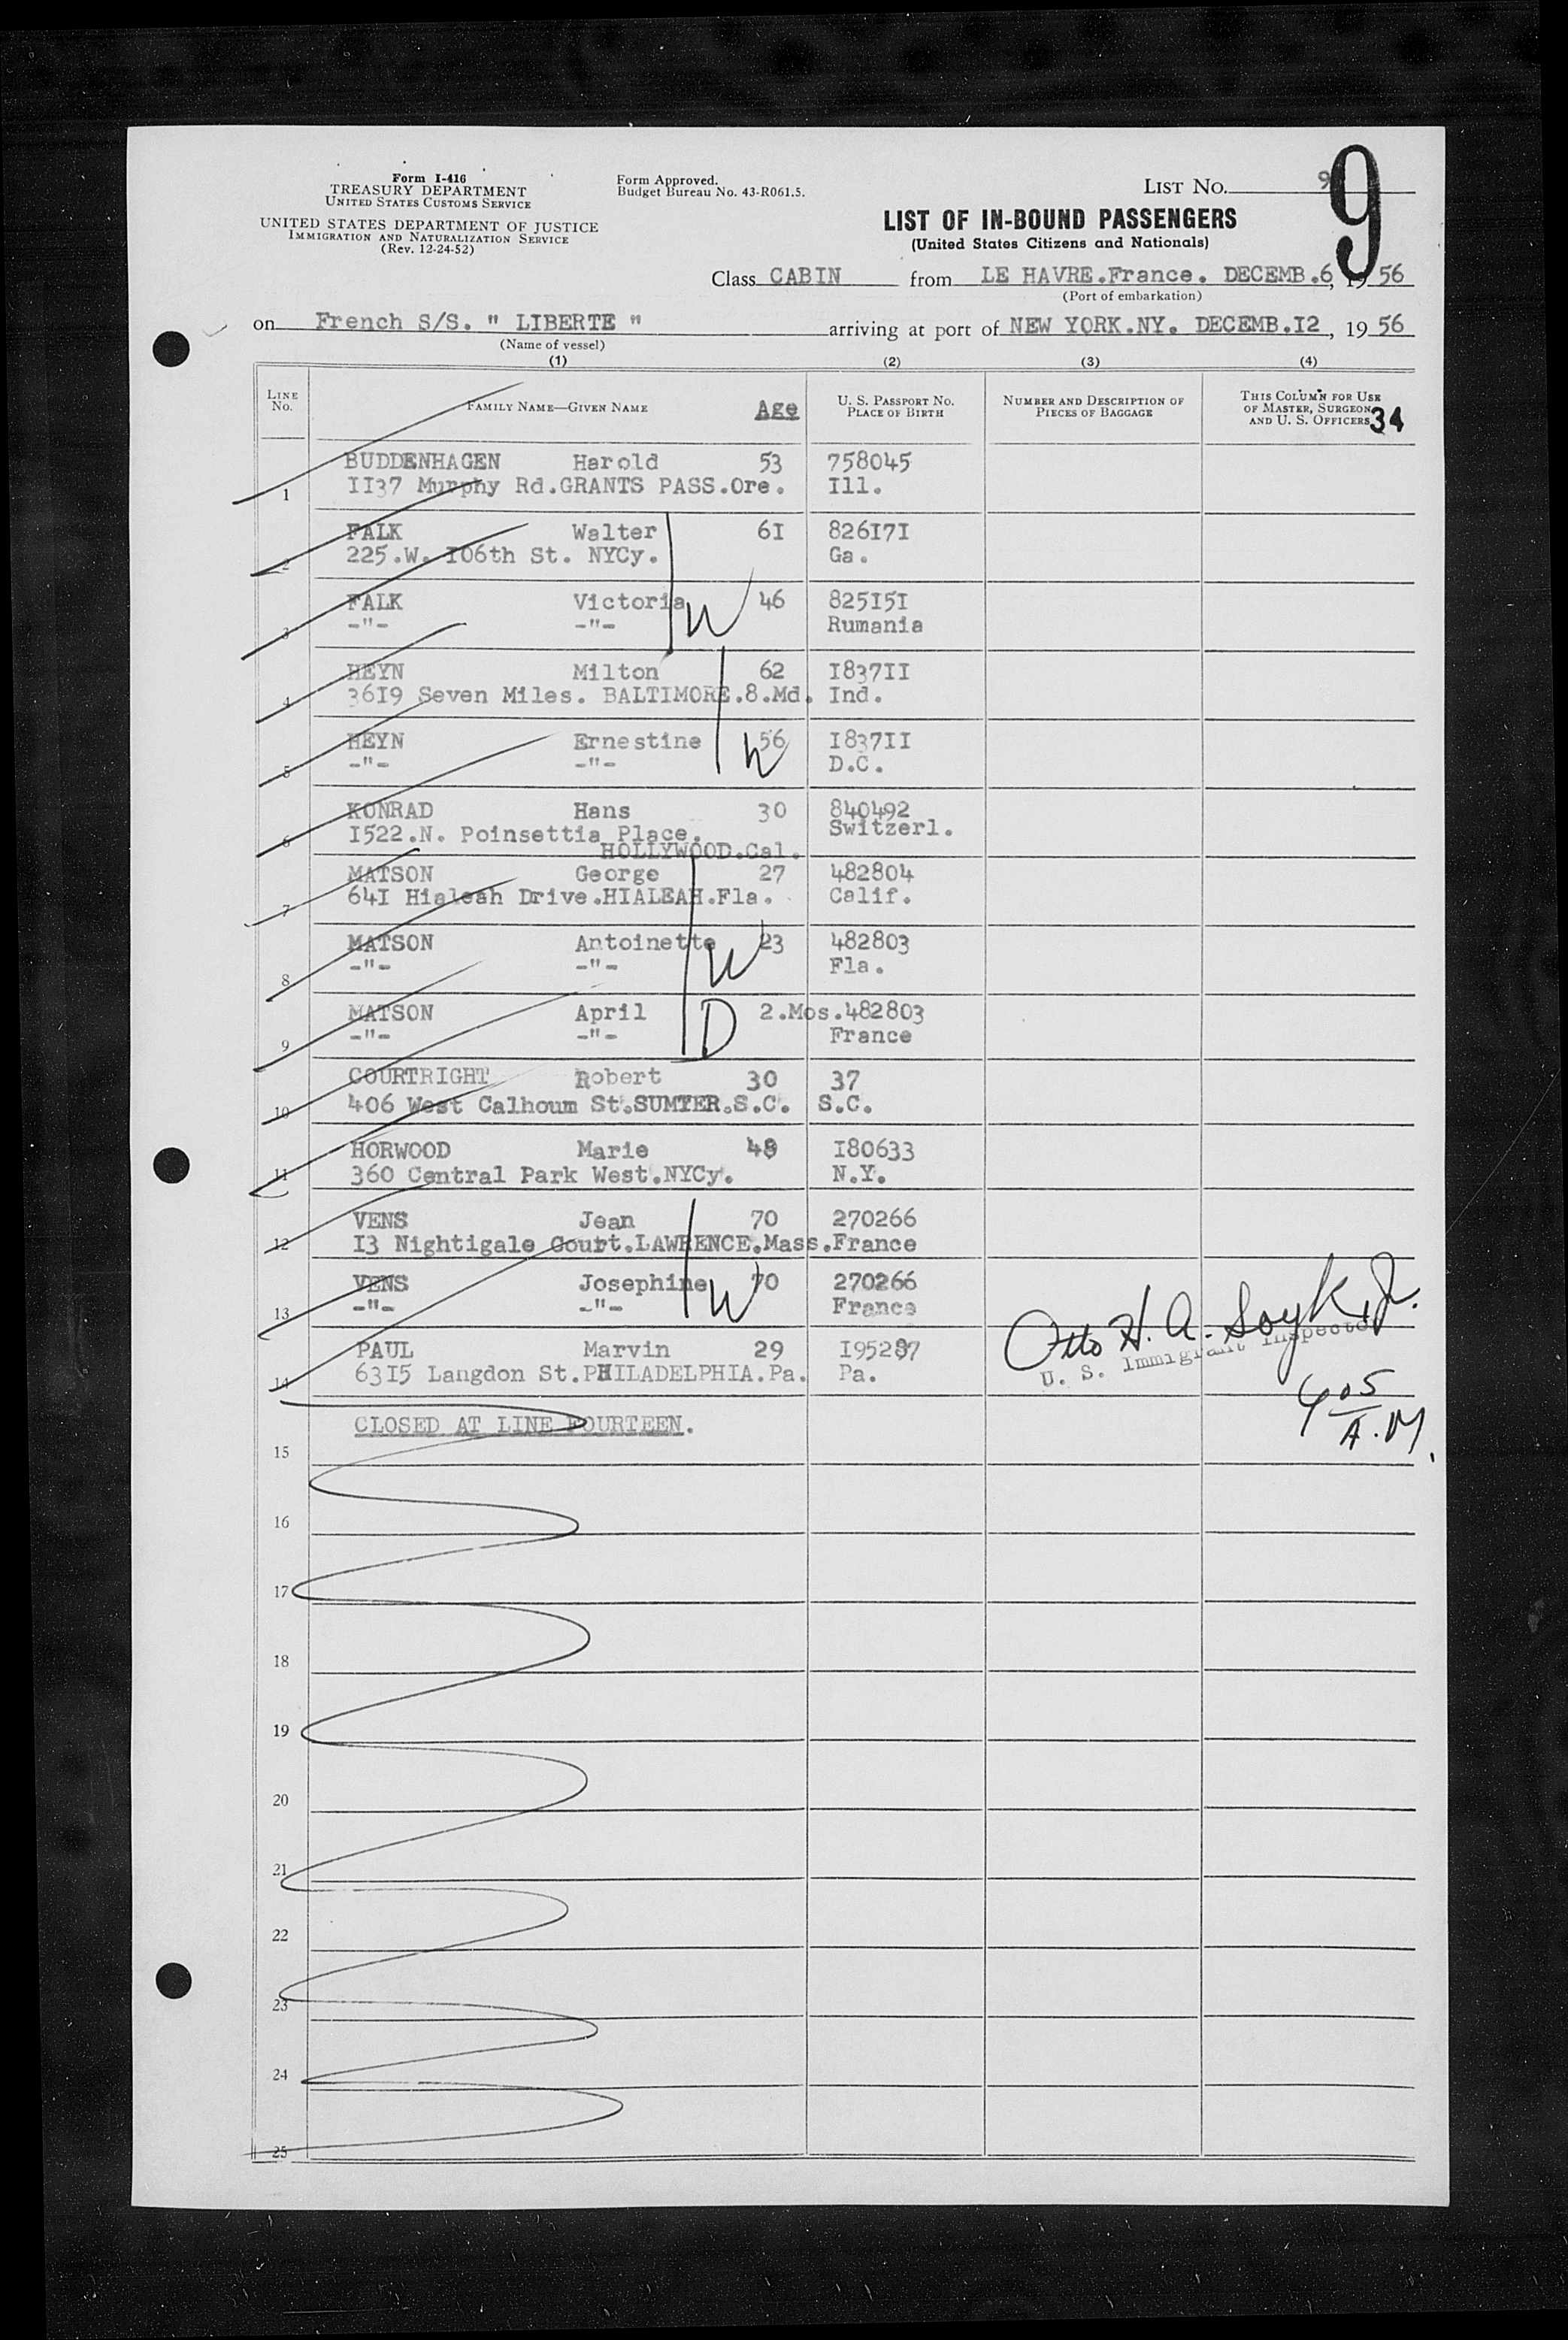 Form I-416
TREASURY DEPARTMENT
UNITED STATES CUSTOMS SERVICE
UNITED STATES DEPARTMENT OF JUSTICE
IMMIGRATION AND NATURALIZATION SERVICE
(Rev. 12-24-52)
Form Approved.
Budget Bureau No. 43-R061.5.
LIST NO. 9
9
LIST OF IN-BOUND PASSENGERS
(United States Citizens and Nationals)
Class CABIN from LE HAVRE.France. DECEMB.6, 1956
(Port of embarkation)
on French S/S. " LIBERTE " arriving at port of NEW YORK.NY. DECEMB.I2, 1956
(Name of vessel)
(1) (2) (3) (4)
LINE NO. FAMILY NAME—GIVEN NAME Age U. S. PASSPORT NO. PLACE OF BIRTH NUMBER AND DESCRIPTION OF PIECES OF BAGGAGE THIS COLUMN FOR USE OF MASTER, SURGEON, AND U. S. OFFICERS 34
BUDDENHAGEN Harold 53 758045
1 II37 Murphy Rd.GRANTS PASS.Ore. Ill.
FALK Walter 6I 826I7I
2 225.W. I06th St. NYCy. Ga.
FALK Victoria 46 825I5I
3 -"- -"- W Rumania
HEYN Milton 62 I837II
4 36I9 Seven Miles. BALTIMORE.8.Md. Ind.
HEYN Ernestine 56 I837II
5 -"- -"- W D.C.
KONRAD Hans 30 840492
6 I522.N. Poinsettia Place. Switzerl.
HOLLYWOOD.Cal.
MATSON George 27 482804
7 64I Hialeah Drive.HIALEAH.Fla. Calif.
MATSON Antoinette 23 482803
8 -"- -"- W Fla.
MATSON April 2.Mos. 482803
9 -"- -"- D France
COURTRIGHT Robert 30 37
10 406 West Calhoum St.SUMTER.S.C. S.C.
HORWOOD Marie 48 I80633
11 360 Central Park West.NYCy. N.Y.
VENS Jean 70 270266
12 I3 Nightigale Court.LAWRENCE.Mass. France
VENS Josephine 70 270266
13 -"- -"- W France
PAUL Marvin 29 I95287
14 63I5 Langdon St.PHILADELPHIA.Pa. Pa.
Otto H. A. Soyk, Jr.
U. S. Immigrant Inspector
905
A.M.
CLOSED AT LINE FOURTEEN.
15
16
17
18
19
20
21
22
23
24
25